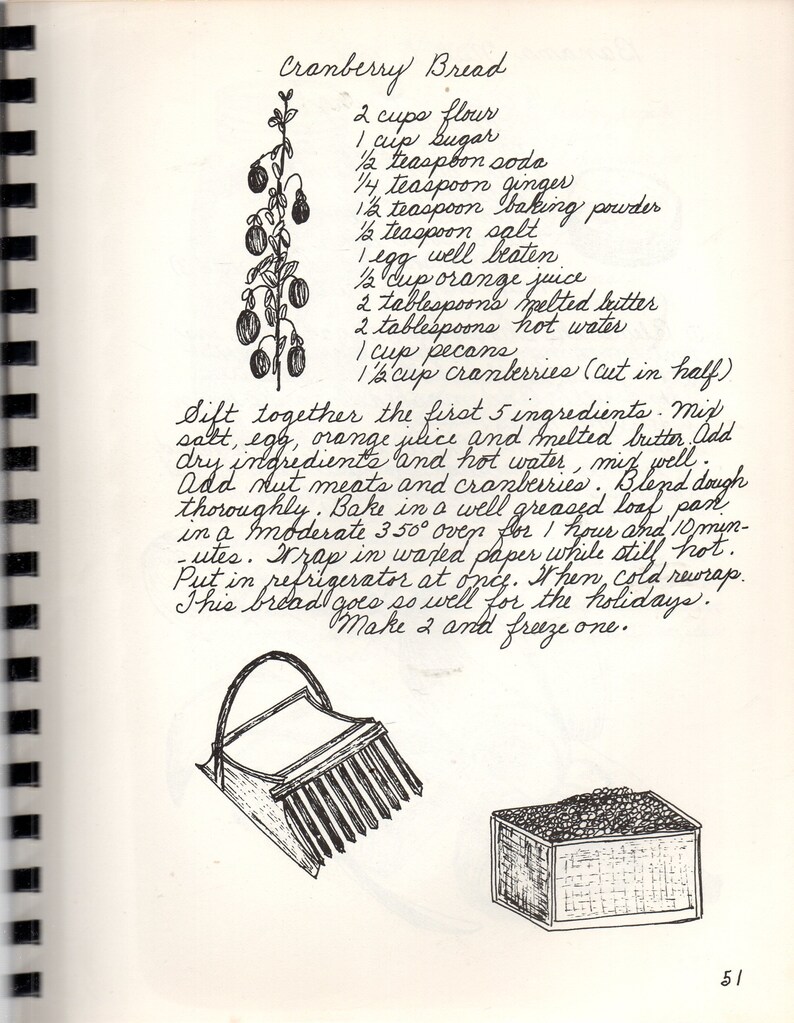 Cranberry Bread
2 cups flour
1 cup sugar
½ teaspoon soda
¼ teaspoon ginger
1½ teaspoon baking powder
½ teaspoon salt
1 egg well beaten
½ cup orange juice
2 tablespoons melted butter
2 tablespoons hot water
1 cup pecans
1½ cup cranberries (cut in half)
Sift together the first 5 ingredients. Mix
salt, egg, orange juice and melted butter. Add
dry ingredients and hot water, mix well.
Add nut meats and cranberries. Blend dough
thoroughly. Bake in a well greased loaf pan
in a moderate 350° oven for 1 hour and 10 min-
-utes. Wrap in waxed paper while still hot.
Put in refrigerator at once. When cold rewrap.
This bread goes so well for the holidays.
Make 2 and freeze one.
51